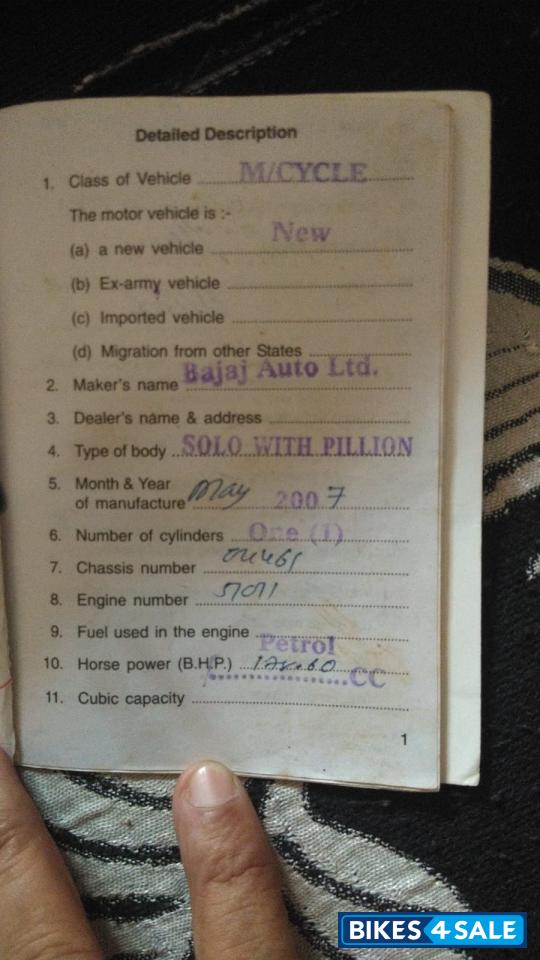 Detailed Description
1. Class of Vehicle M/CYCLE
The motor vehicle is :-
(a) a new vehicle New
(b) Ex-army vehicle
(c) Imported vehicle
(d) Migration from other States
2. Maker's name Bajaj Auto Ltd.
3. Dealer's name & address
4. Type of body SOLO WITH PILLION
5. Month & Year
of manufacture May 2007
6. Number of cylinders One (1)
7. Chassis number
8. Engine number
9. Fuel used in the engine Petrol
10. Horse power (B.H.P.)
CC
11. Cubic capacity
1
BIKES4SALE